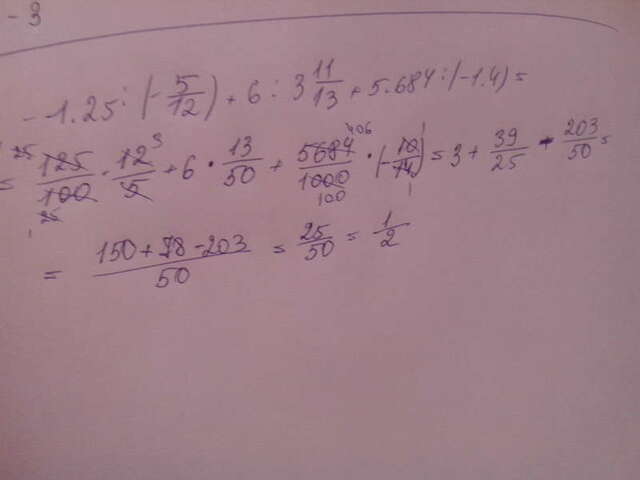 - 3
- 1.25 : (- 5/12) + 6 : 3 11/13 + 5.684 : (-1.4) =
= 125/100 · 12/5 + 6 · 13/50 + 5684/1000 · (- 10/14) = 3 + 39/25 - 203/50 =
= (150 + 78 - 203)/50 = 25/50 = 1/2